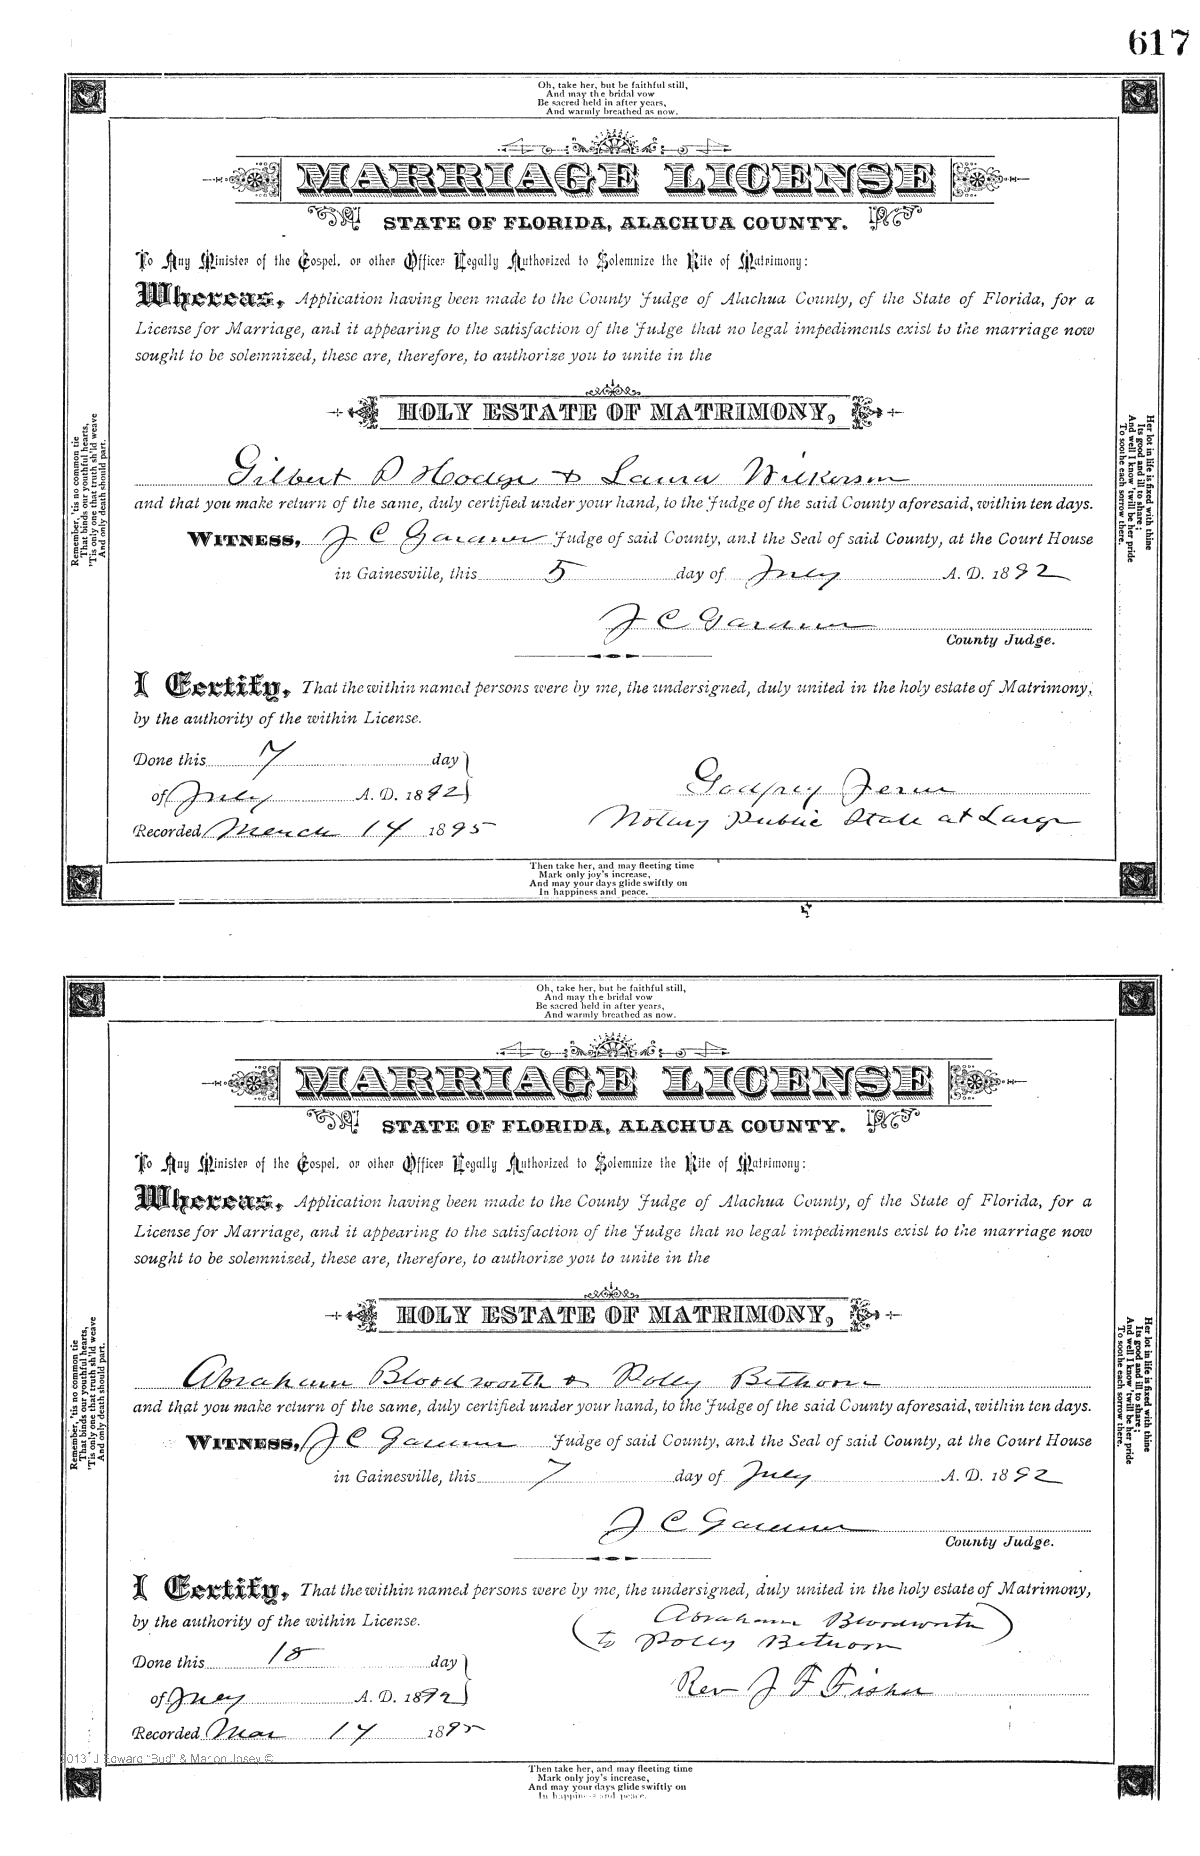 617
Oh, take her, but be faithful still,
And may the bridal vow
Be sacred held in after years,
And warmly breathed as now.
MARRIAGE LICENSE
STATE OF FLORIDA, ALACHUA COUNTY.
To Any Minister of the Gospel, or other Officer Legally Authorized to Solemnize the Rite of Matrimony:
Whereas, Application having been made to the County Judge of Alachua County, of the State of Florida, for a
License for Marriage, and it appearing to the satisfaction of the Judge that no legal impediments exist to the marriage now
sought to be solemnized, these are, therefore, to authorize you to unite in the
HOLY ESTATE OF MATRIMONY,
Gilbert D Hodge & Laura Wilkerson
and that you make return of the same, duly certified under your hand, to the Judge of the said County aforesaid, within ten days.
WITNESS, J C Gardner Judge of said County, and the Seal of said County, at the Court House
in Gainesville, this 5 day of July A. D. 1892
J C Gardner
County Judge.
I Certify, That the within named persons were by me, the undersigned, duly united in the holy estate of Matrimony,
by the authority of the within License.
Done this 7 day
of July A. D. 1892
Recorded March 14 1895
Godfrey
Notary Public State at Large
Then take her, and may fleeting time
Mark only joy's increase,
And may your days glide swiftly on
In happiness and peace.
Remember, 'tis no common tie
That binds our youthful hearts,
'Tis only one that truth sh'ld weave
And only death should part.
Her lot in life is fixed with thine
Its good and ill to share;
And well I know 'twill be her pride
To soothe each sorrow there.
Oh, take her, but be faithful still,
And may the bridal vow
Be sacred held in after years,
And warmly breathed as now.
MARRIAGE LICENSE
STATE OF FLORIDA, ALACHUA COUNTY.
To Any Minister of the Gospel, or other Officer Legally Authorized to Solemnize the Rite of Matrimony:
Whereas, Application having been made to the County Judge of Alachua County, of the State of Florida, for a
License for Marriage, and it appearing to the satisfaction of the Judge that no legal impediments exist to the marriage now
sought to be solemnized, these are, therefore, to authorize you to unite in the
HOLY ESTATE OF MATRIMONY,
Abraham Bloodworth & Polly Bethorn
and that you make return of the same, duly certified under your hand, to the Judge of the said County aforesaid, within ten days.
WITNESS, J C Gardner Judge of said County, and the Seal of said County, at the Court House
in Gainesville, this 7 day of July A. D. 1892
J C Gardner
County Judge.
I Certify, That the within named persons were by me, the undersigned, duly united in the holy estate of Matrimony,
by the authority of the within License.
(Abraham Bloodworth
to Polly Bethorn)
Done this 18 day
of July A. D. 1892
Rev J F Fisher
Recorded Mar 14 1895
2013 J Edward "Bud" & Marion Josey ©
Then take her, and may fleeting time
Mark only joy's increase,
And may your days glide swiftly on
In happiness and peace.
Remember, 'tis no common tie
That binds our youthful hearts,
'Tis only one that truth sh'ld weave
And only death should part.
Her lot in life is fixed with thine
Its good and ill to share;
And well I know 'twill be her pride
To soothe each sorrow there.